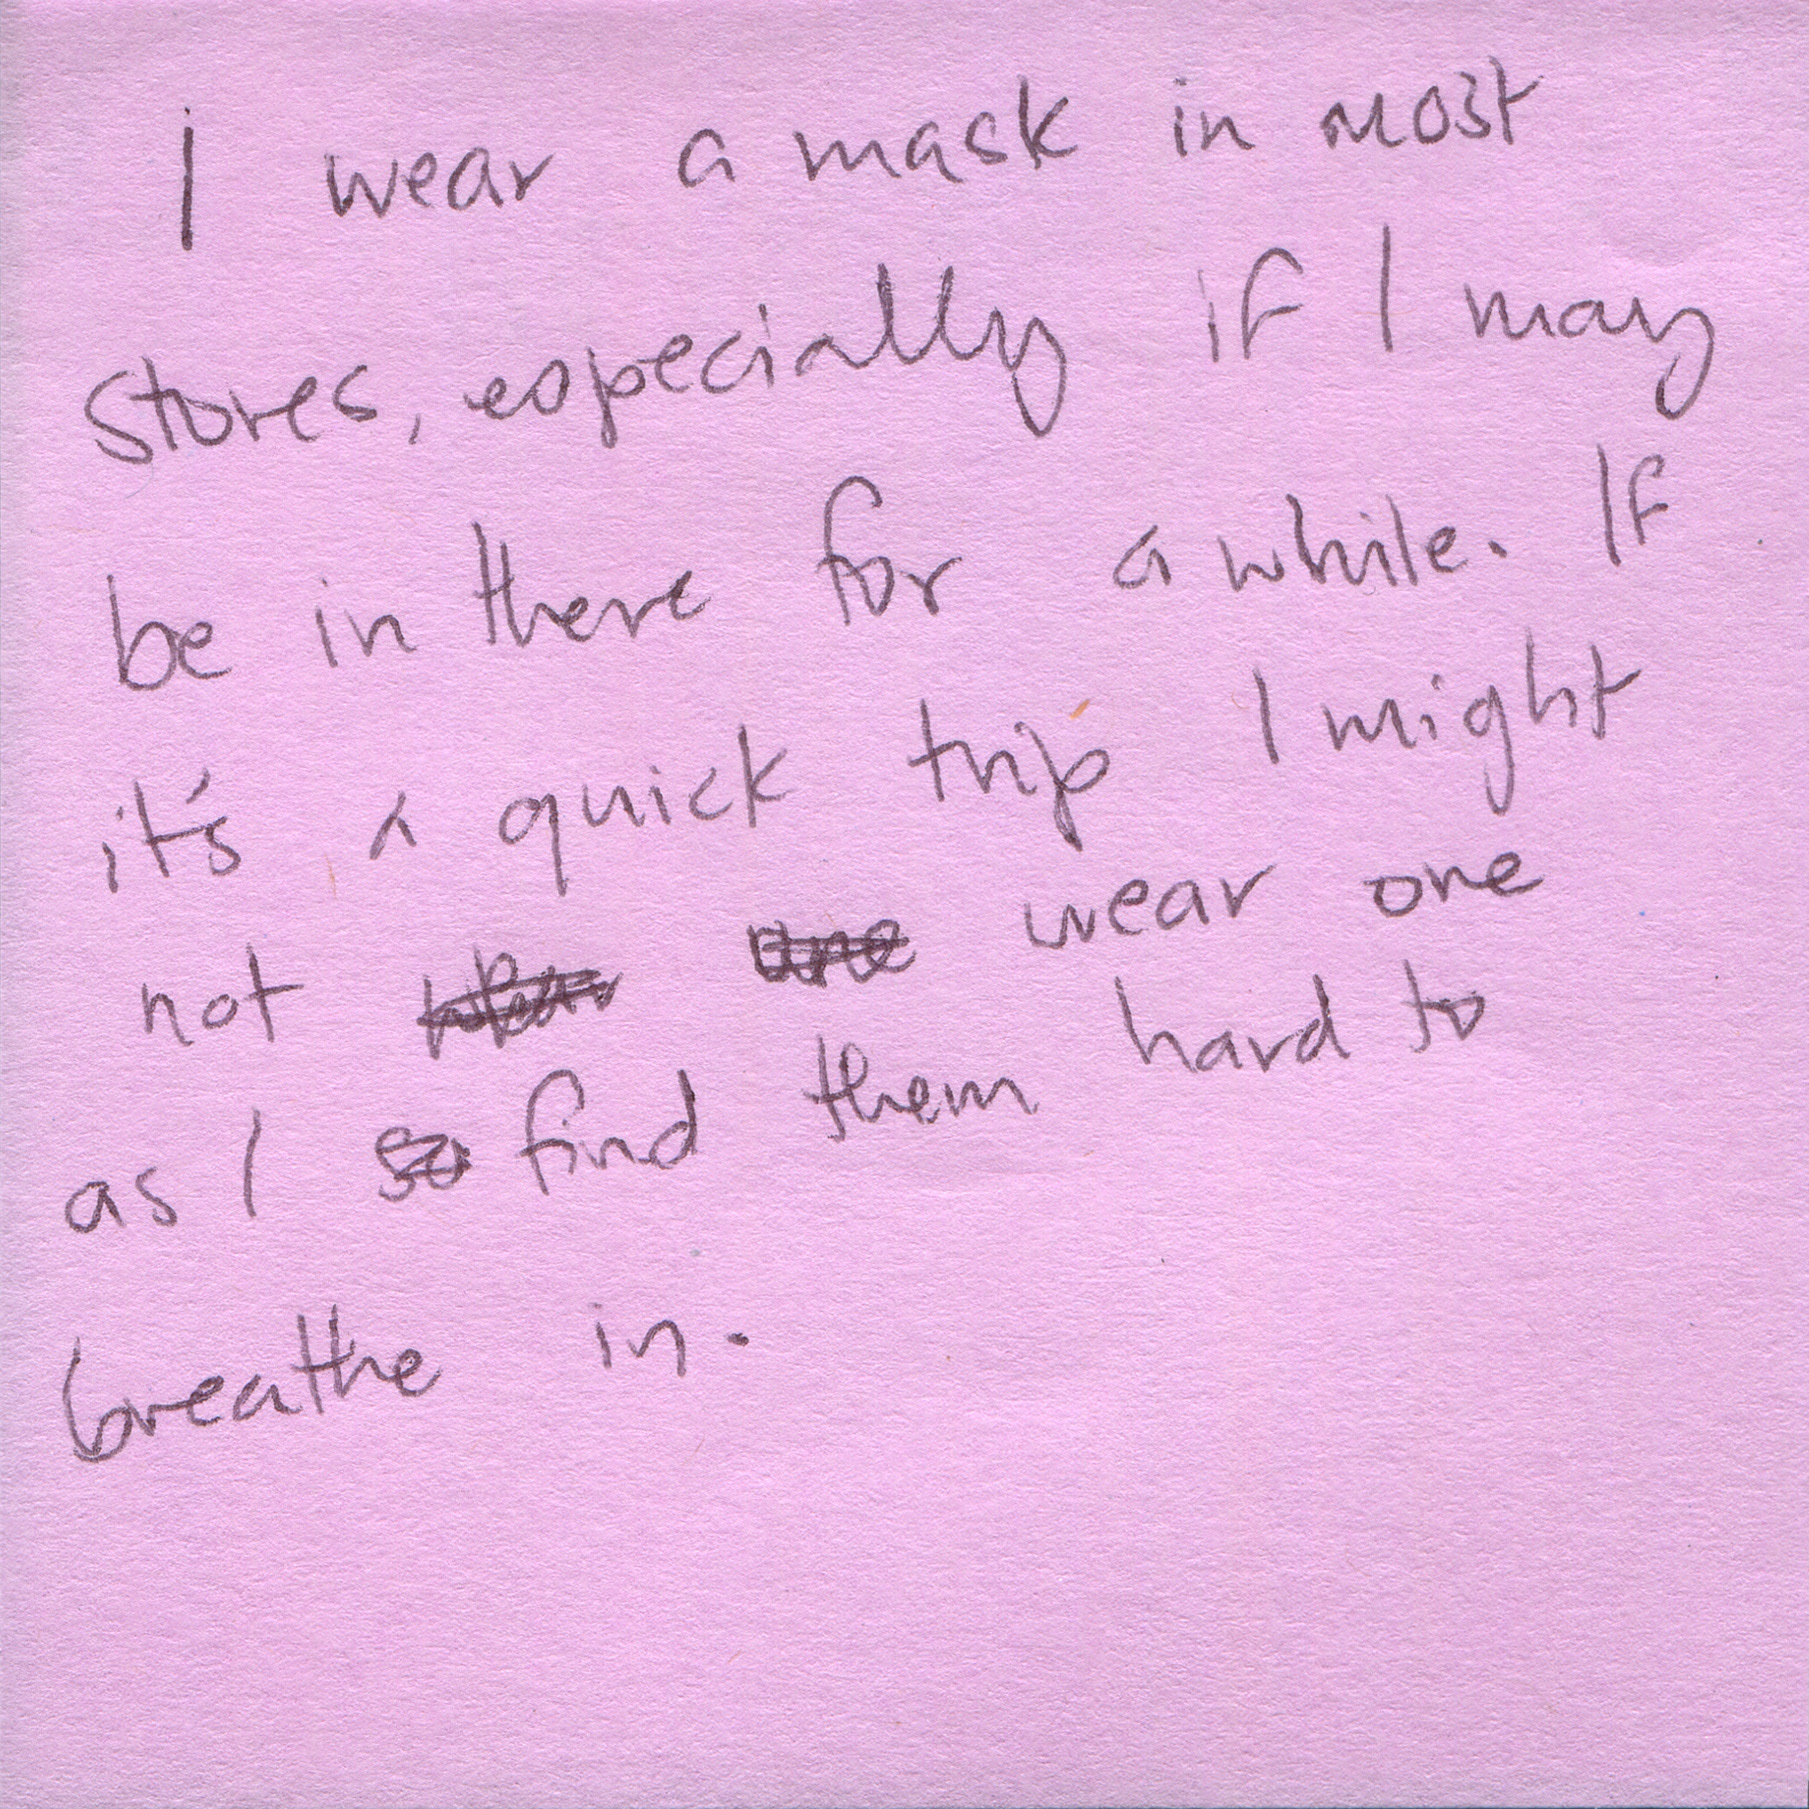 I wear a mask in most
stores, especially if I may
be in there for a while. If
it's a quick trip I might
not wear one
as I find them hard to
breathe in.